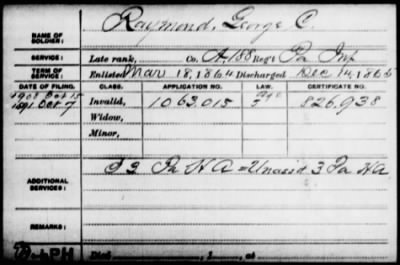 Raymond, George C.
NAME OF SOLDIER:
SERVICE: Late rank, Co. A, 188 Reg't Pa Inf
TERM OF SERVICE: Enlisted Mar 18, 1864 Discharged Dec 14, 1865
DATE OF FILING. CLASS. APPLICATION NO. LAW. CERTIFICATE NO.
1891 Oct 7 Invalid, 1063,015 826,938
Widow,
Minor,
ADDITIONAL SERVICES: Pa H A = Unasid 3 Pa H A
REMARKS:
Died , 1 , at